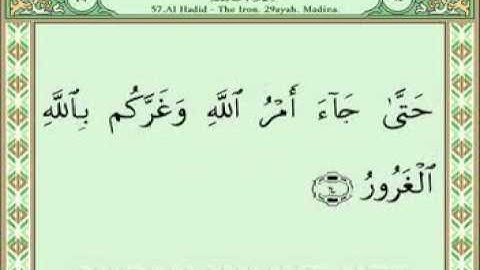 57.Al Hadid - The Iron. 29ayah. Madina.
حَتَّىٰ جَآءَ أَمْرُ ٱللَّهِ وَغَرَّكُم بِٱللَّهِ
ٱلْغَرُورُ